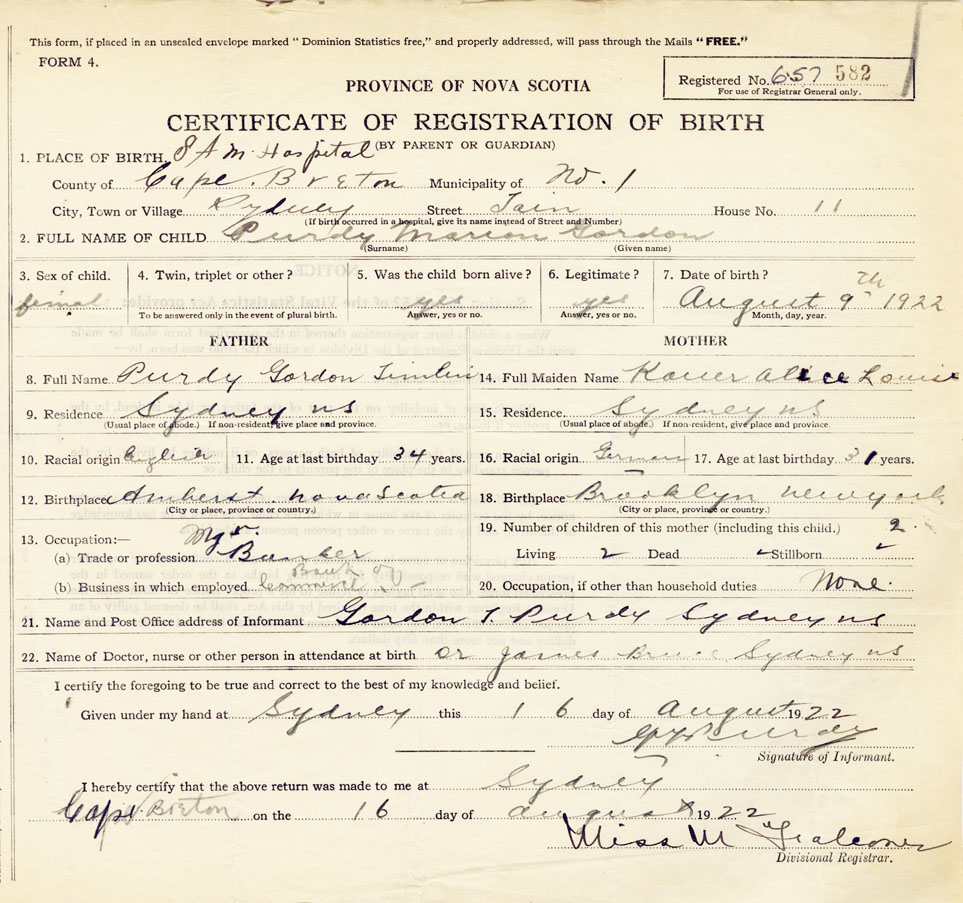 This form, if placed in an unsealed envelope marked " Dominion Statistics free," and properly addressed, will pass through the Mails "FREE."
FORM 4.
Registered No. 657 582
For use of Registrar General only.
PROVINCE OF NOVA SCOTIA
CERTIFICATE OF REGISTRATION OF BIRTH
(BY PARENT OR GUARDIAN)
1. PLACE OF BIRTH, Hospital
County of Cape. Breton Municipality of No. 1
City, Town or Village Sydney Street House No. 11
(If birth occurred in a hospital, give its name instead of Street and Number)
2. FULL NAME OF CHILD Purdy Marion Gordon
(Surname) (Given name)
3. Sex of child. 4. Twin, triplet or other? 5. Was the child born alive? 6. Legitimate? 7. Date of birth?
femal yes yes August 9th 1922
To be answered only in the event of plural birth. Answer, yes or no. Answer, yes or no. Month, day, year.
FATHER MOTHER
8. Full Name Purdy Gordon 14. Full Maiden Name Alice Louise
9. Residence Sydney ns 15. Residence. Sydney ns
(Usual place of abode.) If non-resident, give place and province. (Usual place of abode.) If non-resident, give place and province.
10. Racial origin English 11. Age at last birthday 34 years. 16. Racial origin German 17. Age at last birthday 31 years.
12. Birthplace Amherst. nova Scotia 18. Birthplace Brooklyn new york
(City or place, province or country.) (City or place, province or country.)
19. Number of children of this mother (including this child.) 2.
13. Occupation:— Mgr.
(a) Trade or profession Banker Living 2 Dead Stillborn
Bank of
(b) Business in which employed Commerce 20. Occupation, if other than household duties None.
21. Name and Post Office address of Informant Gordon T. Purdy Sydney ns
22. Name of Doctor, nurse or other person in attendance at birth Dr James Bruce Sydney ns
I certify the foregoing to be true and correct to the best of my knowledge and belief.
Given under my hand at Sydney this 16 day of August 1922
Purdy
Signature of Informant.
I hereby certify that the above return was made to me at Sydney
Cape Breton on the 16 day of August 1922
Miss M Falconer
Divisional Registrar.